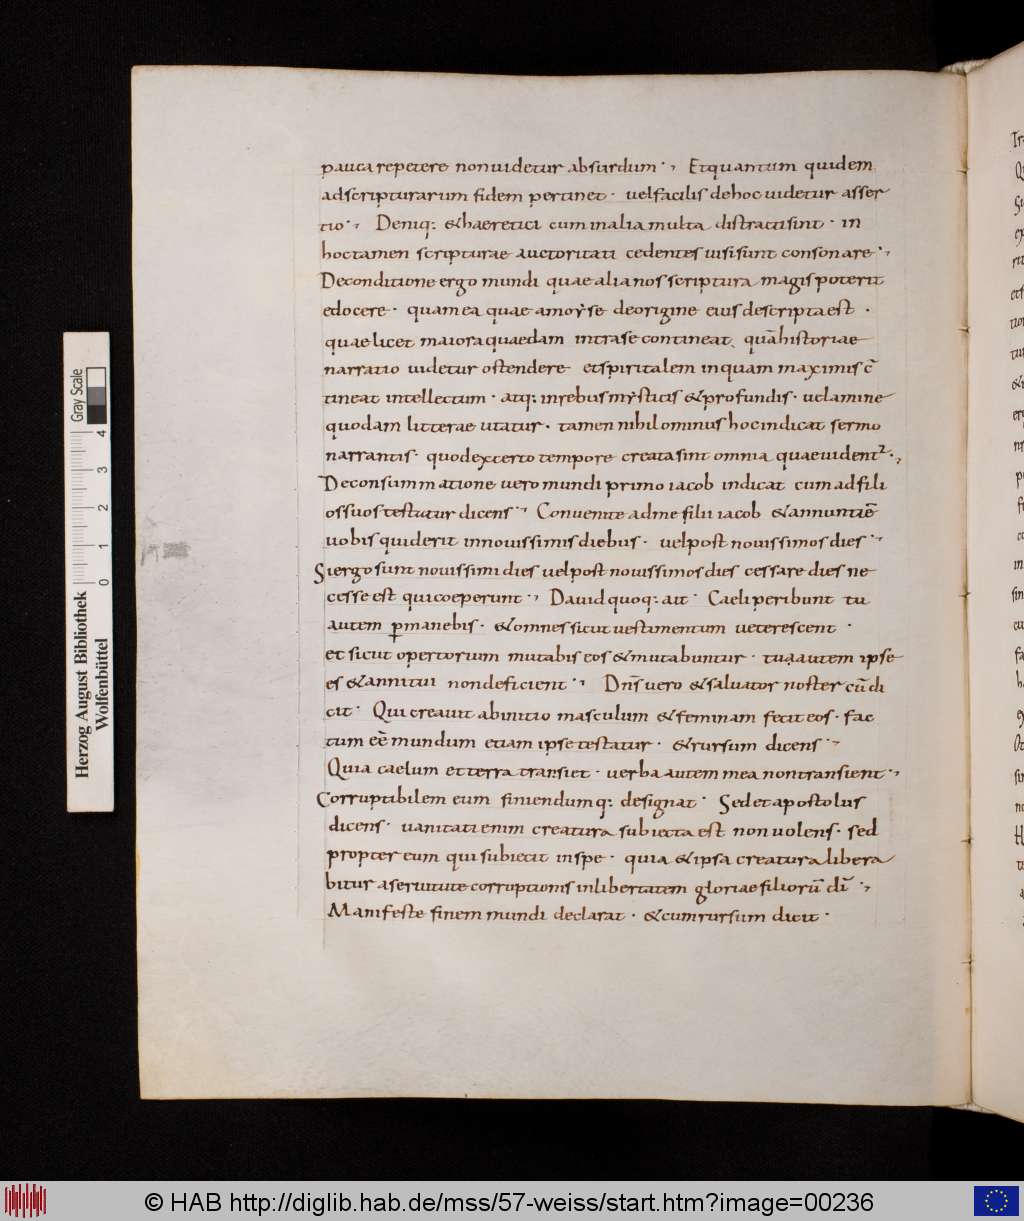 pauca repetere non uidetur absurdum · , Et quantum quidem
ad scripturarum fidem pertinet · uel facilis de hoc uidetur asser
tio · , Deniq: & haeretici cum in alia multa distracti sint · in
hoc tamen scripturae auctoritati cedentes uisi sunt consonare · ,
De conditione ergo mundi quae alia nos scriptura magis poterit
edocere · quam ea quae a moyse de origine eius descripta est ·
quae licet maiora quaedam intra se contineat, quā historiae
narratio uidetur ostendere et spiritalem in quam maximis c̄
tineat intellectum · atq: in rebus mysticis & profundis · uelamine
quodam litterae utatur · tamen nihilominus hoc indicat sermo
narrantis · quod ex certo tempore creata sint omnia quae uident² · ,
De consummatione uero mundi primo iacob indicat cum ad fili
os suos testatur dicens · , Conuenite ad me filii iacob & annuntiē
uobis quid erit in nouissimis diebus · uel post nouissimos dies · ,
Si ergo sunt nouissimi dies uel post nouissimos dies cessare dies ne
cesse est qui coeperunt · , Dauid quoq: ait · Caeli peribunt tu
autem ꝑmanebis · & omnes sicut uestimentum ueterescent ·
et sicut opertorium mutabis eos & mutabuntur · tu autem ipse
es & anni tui non deficient · , Dn̄s uero & saluator noster cū di
cit · Qui creauit ab initio masculum & feminam fecit eos · fac
tum eē mundum etiam ipse testatur · & rursum dicens · ,
Quia caelum et terra transiet · uerba autem mea non transient · ,
Corruptibilem eum finiendumq: designat · Sed et apostolus
dicens · uanitati enim creatura subiecta est non uolens · sed
propter eum qui subiecit in spe · quia & ipsa creatura libera
bitur a seruitute corruptionis in libertatem gloriae filiorū dī · ,
Manifeste finem mundi declarat · & cum rursum dicit ·
Gray Scale
0 1 2 3 4
Herzog August Bibliothek
Wolfenbüttel
© HAB http://diglib.hab.de/mss/57-weiss/start.htm?image=00236